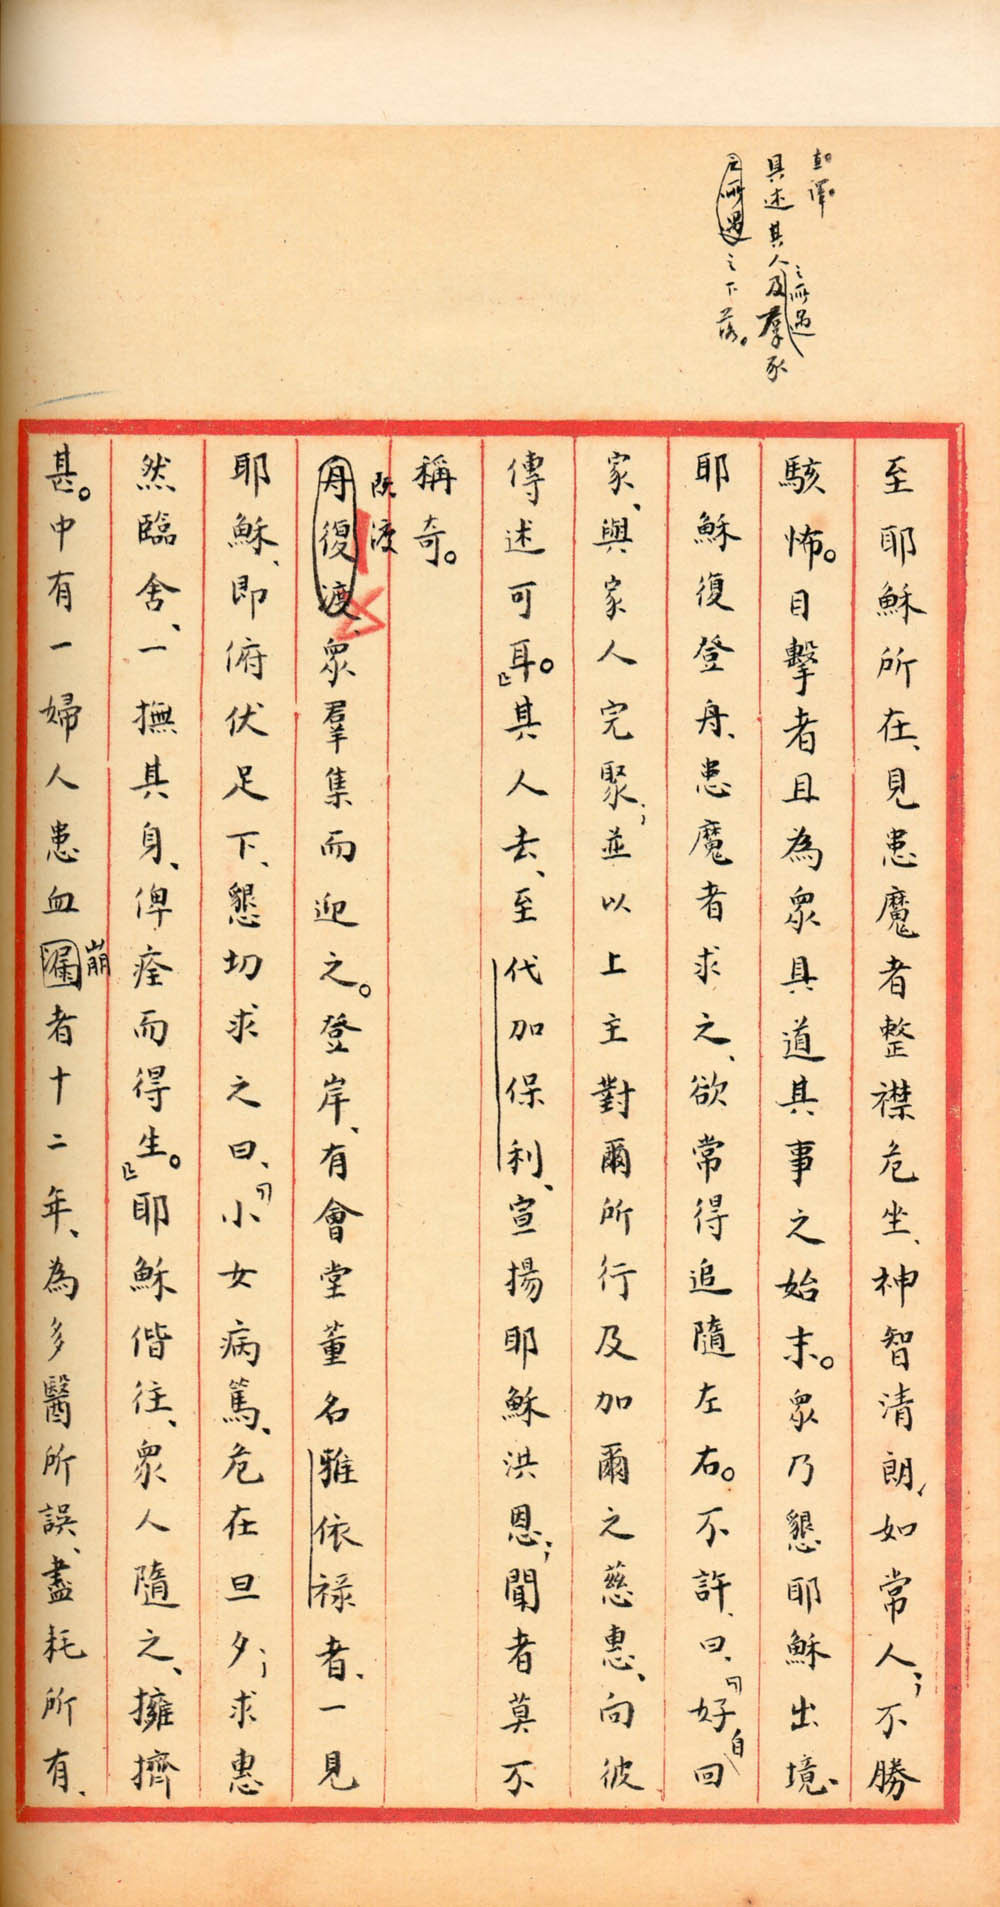 直譯。
具述其人及羣豕
之所遇
之所遇之下落。
至耶穌所在、見患魔者整襟危坐、神智清朗、如常人；不勝
駭怖。目擊者且為眾具道其事之始末。眾乃懇耶穌出境、
耶穌復登舟、患魔者求之、欲常得追隨左右。不許、曰、「好自回
家、與家人完聚；並以上主對爾所行及加爾之慈惠、向彼
傳述可耳。」其人去、至代加保利、宣揚耶穌洪恩；聞者莫不
稱奇。
既渡
舟復渡、眾羣集而迎之。登岸、有會堂董名雅依祿者、一見
耶穌、即俯伏足下、懇切求之曰、「小女病篤、危在旦夕；求惠
然臨舍、一撫其身、俾痊而得生。」耶穌偕往、眾人隨之、擁擠
崩
甚。中有一婦人患血漏者十二年、為多醫所誤、盡耗所有、